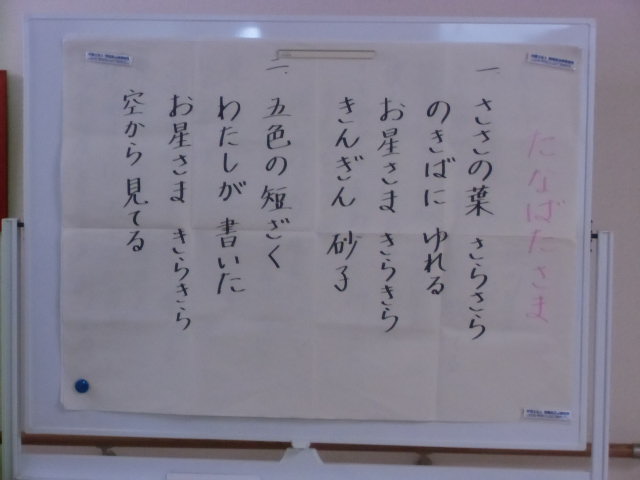 たなばたさま
一、 ささの葉 さらさら
のきばに ゆれる
お星さま きらきら
きんぎん 砂子
二、 五色の短ざく
わたしが 書いた
お星さま きらきら
空から 見てる